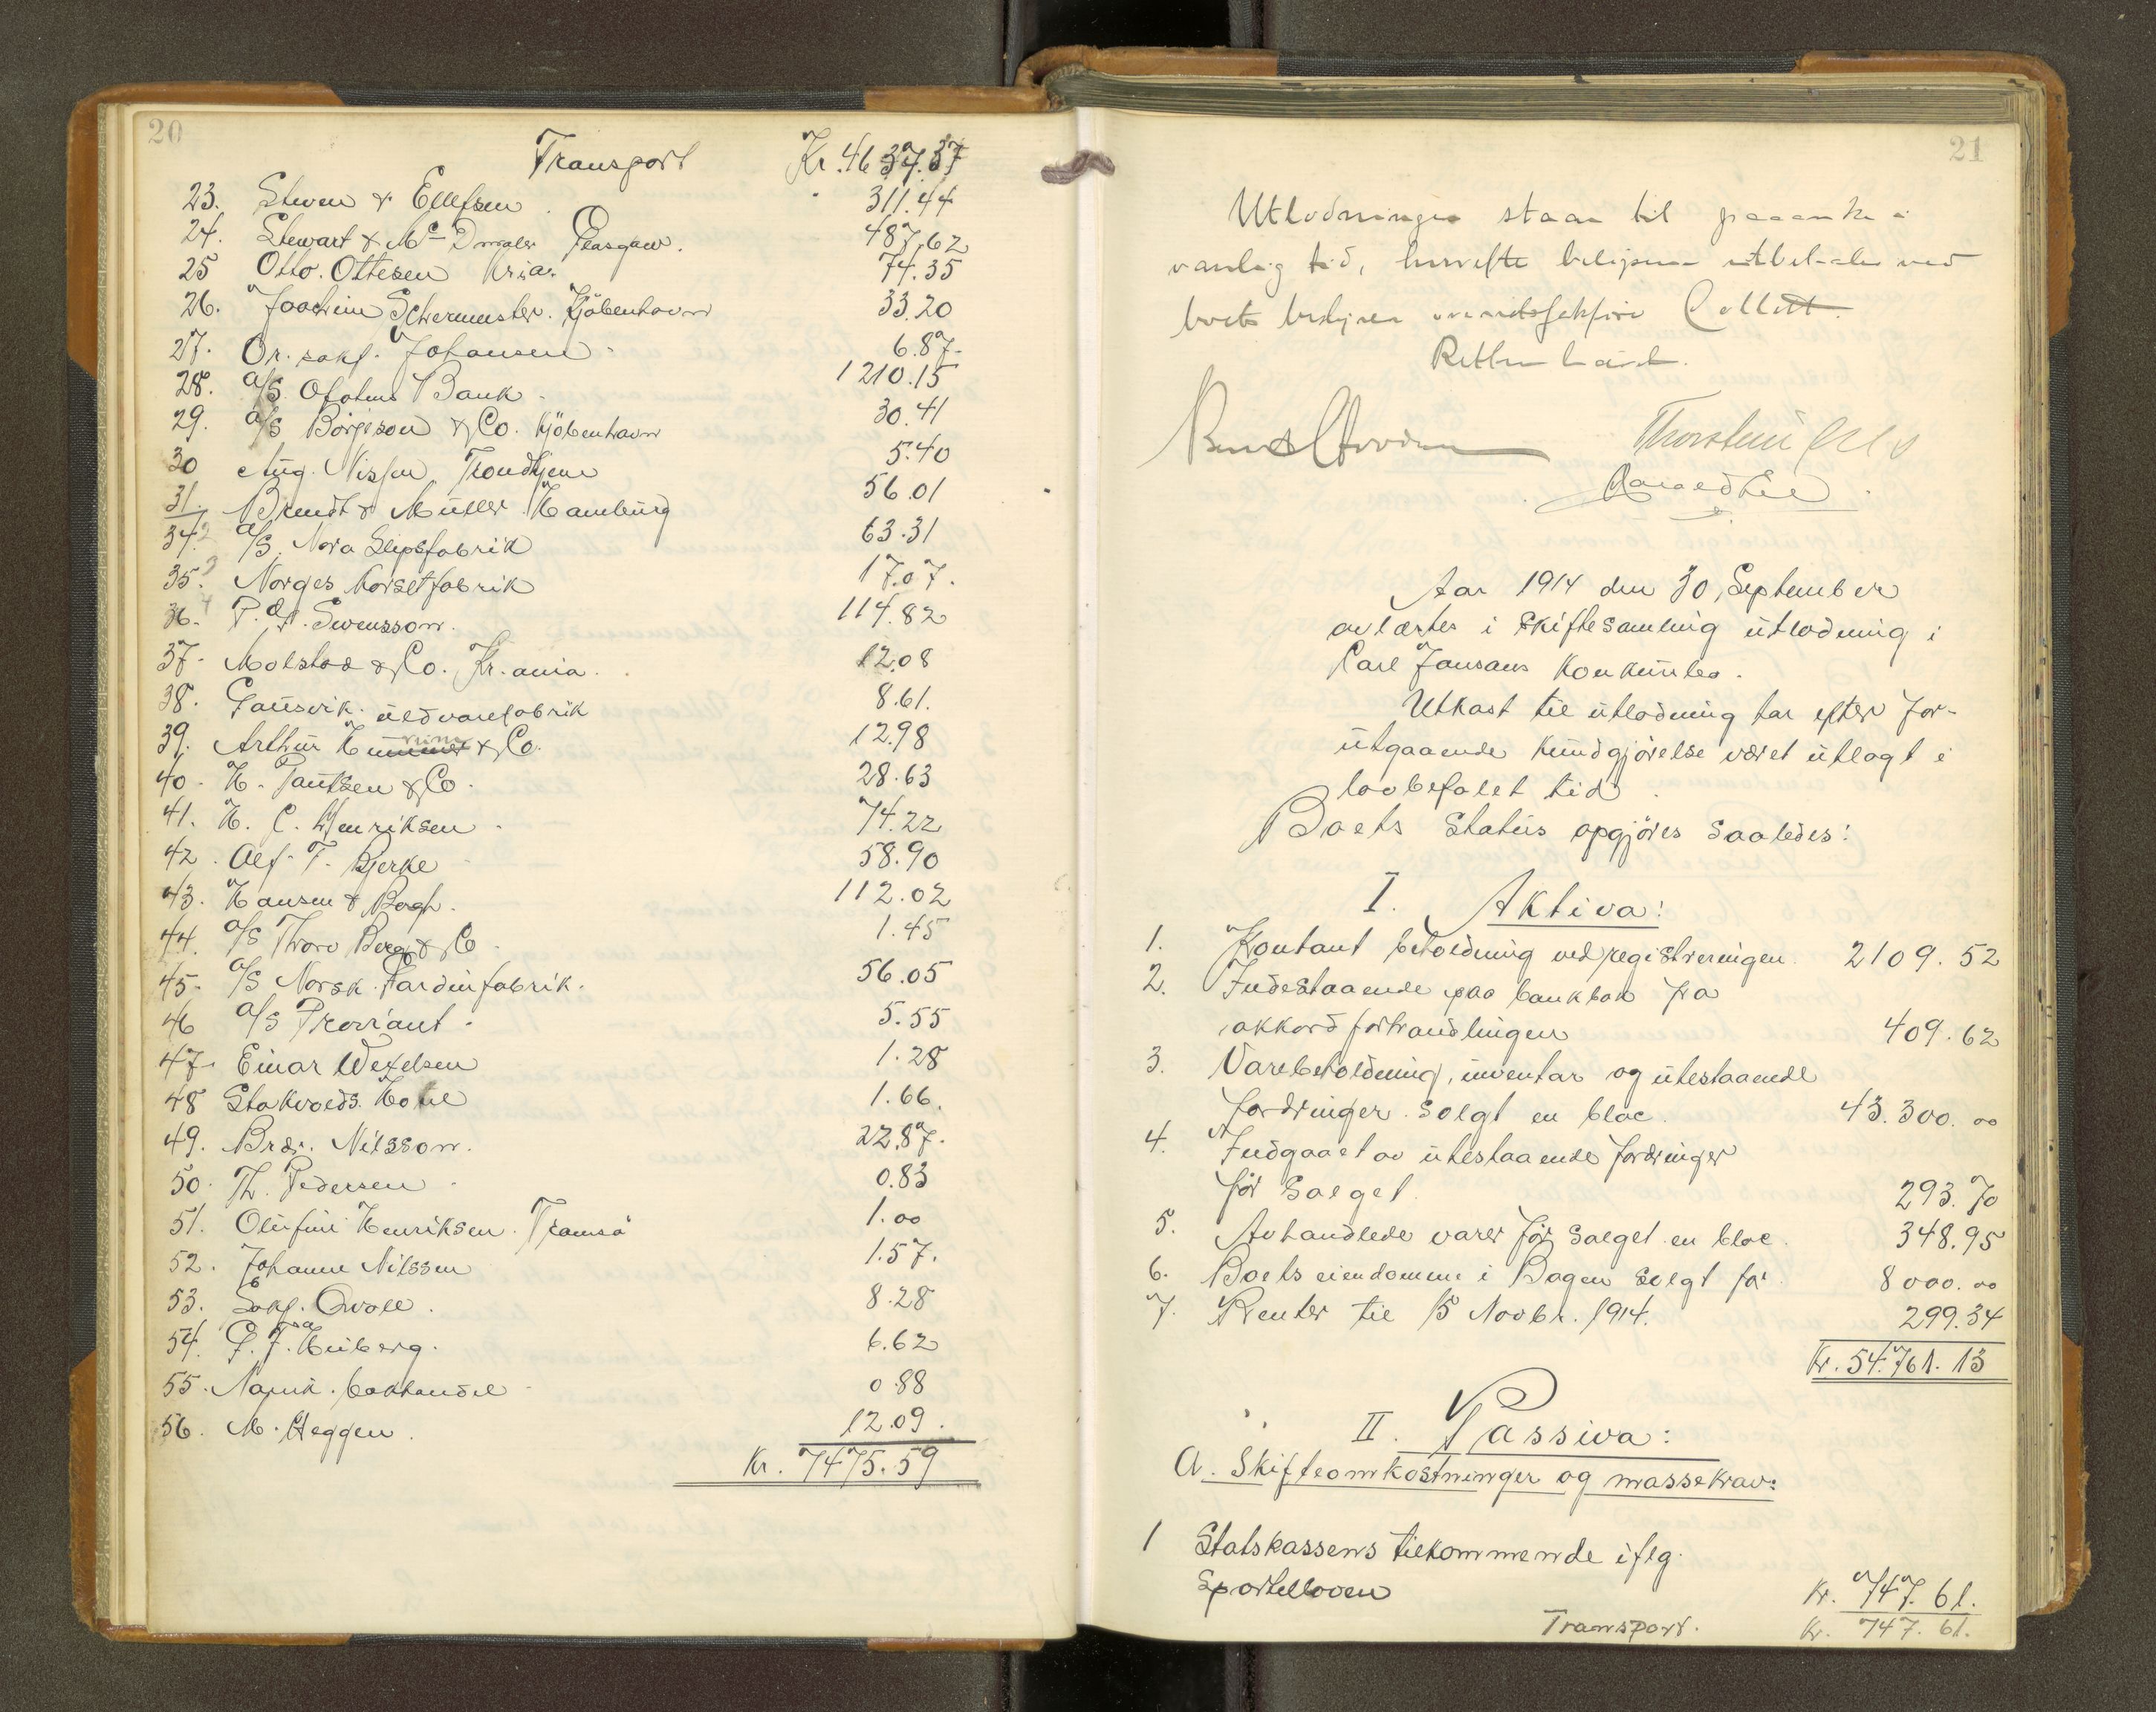 20
Transport Kr. 4637.37
23. Steven & Ellefsen 311.44
24. Stewart & Mc Glasgow. 487.62
25 Otto. Ottesen Kria. 74.35
26. Joachim Kjöbenhavn 33.20
27. Or. sakf. Johansen 6.87.
28. a/S Ofotens Bank 1210.15
29. a/S Börjeson & Co. Kjöbenhavn 30.41
30 Aug. Nissen Trondhjem 5.40
31. Brendt & Müller Hamburg 56.01
34. 2 a/S. Nora Slipsfabrik 63.31
35. 3 Norges Korsetfabrik 17.07.
36. 4 P. A. Svensson. 114.82
37. Molstad & Co. Kr.ania. 12.08
38. Gausvik uldvarefabrik 8.61.
39. Arthur & Co. 12.98
40. H. Pautsen & Co. 28.63
41. H. C. Henriksen 74.22
42. Alf. T. Bjerke 58.90
43. Hansen & Bogh. 112.02
44. a/S Thorv Berg & Co 1.45
45. a/S Norsk Gardinfabrik. 56.05
46 a/S Proviant. 5.55
47. Einar Wexelsen 1.28
48 Stokvolds. Hotel 1.66.
49. Brdr. Nilsson. 22.87.
50. Th. Pedersen 0.83
51. Olufine Henriksen. Tromsö 1.00
52. Johanne Nilssen 1.57.
53. Sakf. Qvale. 8.28
54. P. J. Heiberg. 6.62
55. Narvik. bokhandel 0.88
56. M. Heggen. 12.09.
Kr. 7475.59
21
Utlodningen staar til paaanke i
vanlig tid, hvorefter belöpene utbetales ved
boets bestyrer overretssakförer Collett.
Retten hævet.
Aar 1914 den 30 September
avlærtes i skiftesamling utlodning i
Carl Jansens konkursbo.
Utkast til utlodning har efter for-
utgaaende kundgjörelse været utlagt i
lovbefalet tid.
Boets status opgjöres saaledes:
I. Aktiva:
1. Kontant beholdning ved registreringen. 2109.52
2. Indestaaende paa bankbok fra
akkordforhandlingen 409.62
3. Varebeholdning, inventar og utestaaende
fordringer solgt en bloc. 43.300.00
4. Indgaaet av utestaaende fordringer
för salget. 293.70
5. Avhandlede varer för salget en bloc. 348.95
6. Boets eiendomme i Bogen solgt for 8000.00
7. Renter til 15 Novbr. 1914. 299.34
Kr. 54.761.13
II. Passiva:
A. Skifteomkostninger og massekrav:
1 Statskassens tilkommende iflg.
Sportelloven Kr. 747.61.
Transport. Kr. 747.61.